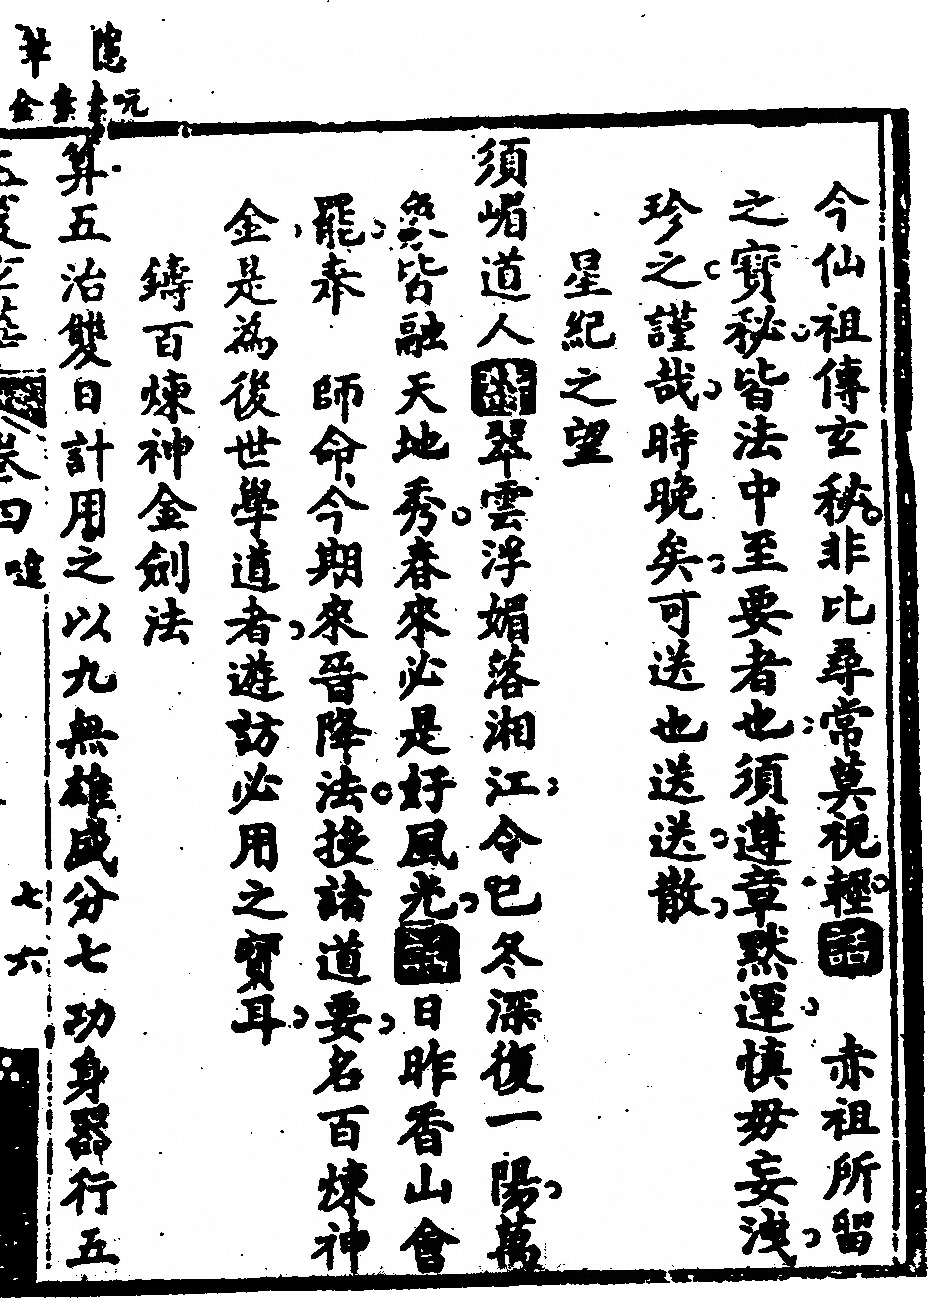 今仙祖傳玄秘非比尋常莫視輕 赤祖所留
之寶秘皆法中至要者也須遵章默運慎毋妄洩
珍之謹哉時晚矣可送也送送散
星紀之望
須嵋道人 翠雲浮媚落湘江令已冬深復一陽萬
象皆融天地秀春來必是好風光 日昨香山會
罷奉 師命今期來晉降法授諸道要名百煉神
金是為後世學道者遊訪必用之寶耳
鑄百煉神金劍法
算五治雙日計用之以九無雄盛分七功身器行五
卷四
七六